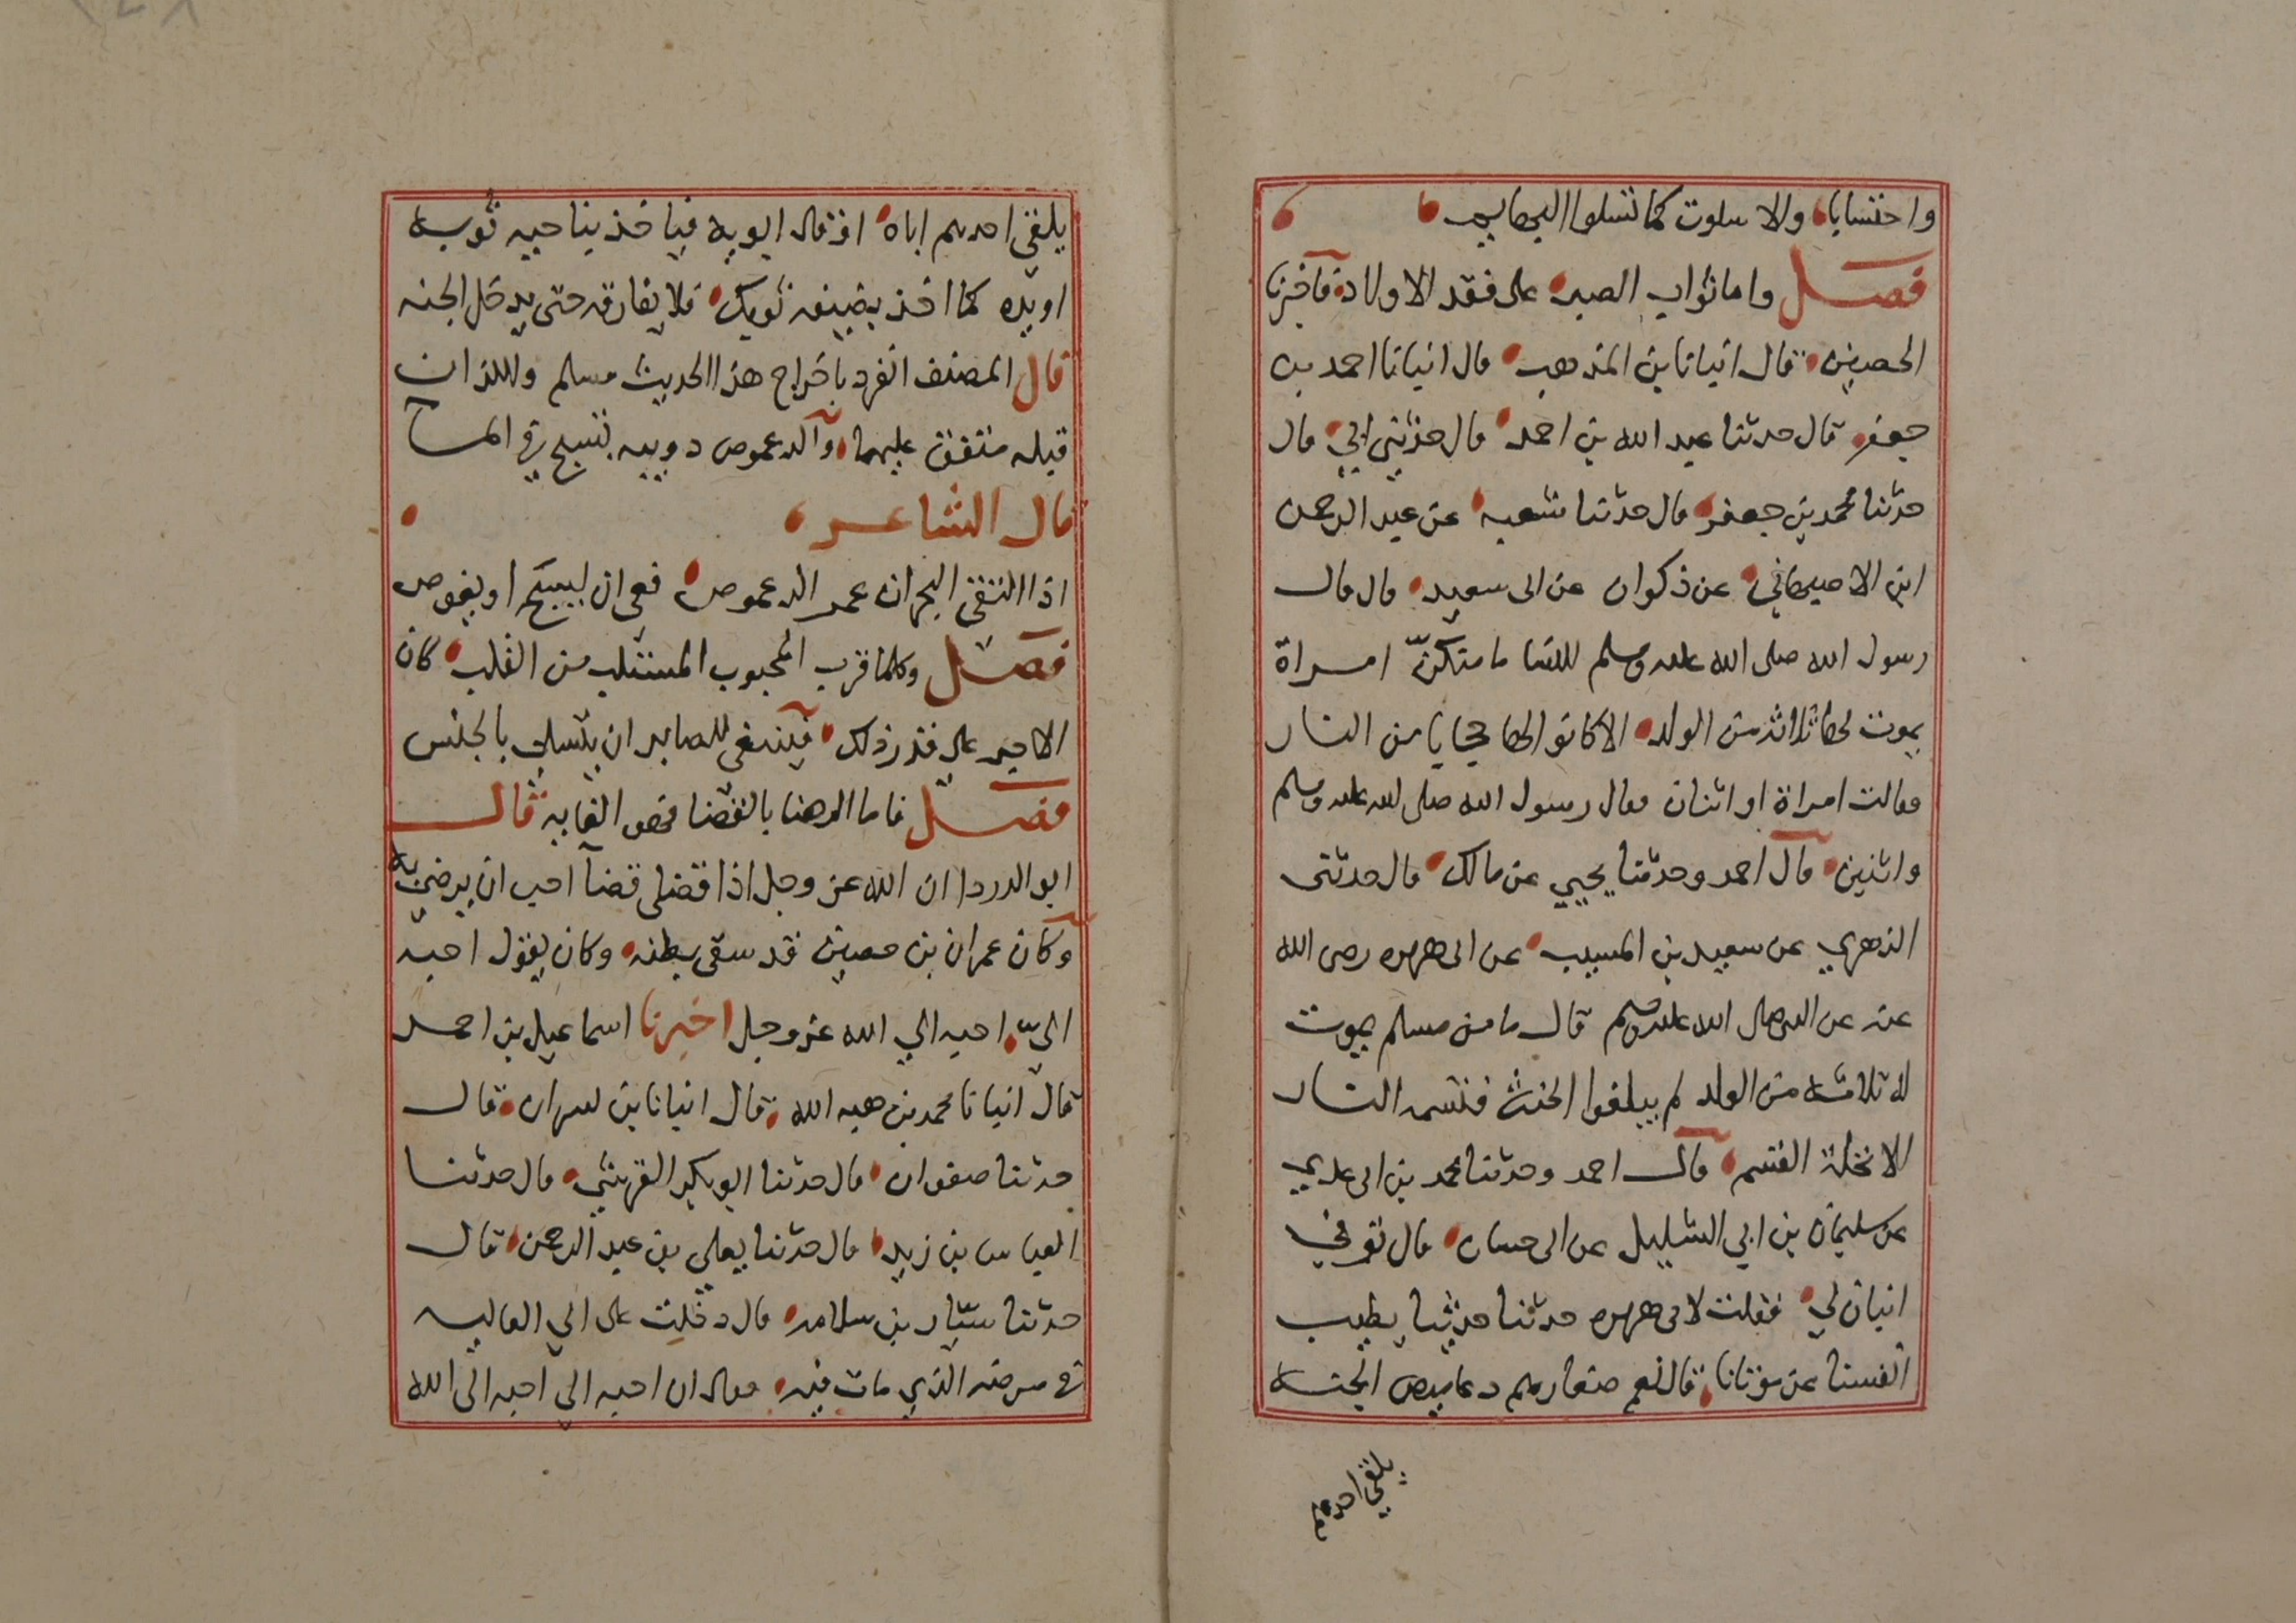 واحتسابا والا سلوت كما تسلوا البهايم
فصل واما ثواب الصبر على فقد الاولاد فاخبرنا
الحصين قال انبانا بن المذهب قال انبانا احمد بن
جعفر قال حدثنا عبد الله بن احمد قال حدثني ابي قال
حدثنا محمد بن جعفر قال حدثنا شعبه عن عبد الرحمن
ابن الاصبهاني عن ذكوان عن ابى سعيد قال قال
رسول الله صلى الله عليه وسلم للنسا ما منكنّ امراة
يموت لها ثلاثة من الولد الا كانو لها حجابا من النار
فقالت امراة او اثنان فقال رسول الله صلى الله عليه وسلم
واثنين قال احمد وحدثنا يحيي عن مالك قال حدثنى
الزهري عن سعيد بن المسيب عن ابى هريره رضى الله
عنه عن النبي صلى الله عليه وسلم قال ما من مسلم يموت
له ثلاثة من الولد لم يبلغوا الحنث فتمسه النار
الا تحلة القسم قال احمد وحدثنا محمد بن ابى عدي
عن سليمان بن ابي السليل عن ابى حسان قال توفي
ابنان لي فقلت لابى هريره حدثنا حديثا يطيب
انفسنا عن موتانا قال نعم صغارهم دعاميص الجنه
يلقي احدهم
يلقي احدهم اباه او قال ابويه فياخذ بناحيه ثوبه
او يده كما اخذ بضيفه ثوبك فلا يفارقه حتى يدخل الجنه
قال المصنف انفرد باخراج هذا الحديث مسلم واللذان
قبله متفق عليهما والدعموص دويبه تسبح في الما
قال الشاعر
اذا التقى البحران عمر الدعموص فعي ان يسبح او يغوص
فصل وكلما قرب المحبوب المستلب من القلب كان
الاجر على قدر ذلك فينبغي للصابر ان يتسلي بالجنس
فصل فاما الرضا بالقضا فهو الغايه قال
ابو الدردا ان الله عز وجل اذا قضى قضآ احب ان يرضي به
وكان عمران بن حصين قد سقى بطنه وكان يقول احبه
اليّ احبه الي الله عز وجل اخبرنا اسماعيل بن احمد
قال انبانا محمد بن هبه الله قال انبانا بن بسران قال
حدثنا صفوان قال حدثنا ابو بكر القرشي قال حدثنا
العباس بن زيد قال حدثنا يعلي بن عبد الرحمن قال
حدثنا سيّار بن سلامه قال دخلت على ابي العاليه
في مرضه الذي مات فيه فقال ان احبه الي احبه الى الله